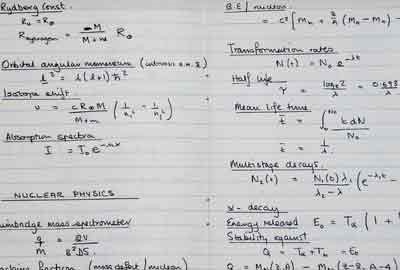 Rydberg Const.
R∞ = R∞
R Hydrogen = M / M+m R∞
Orbital angular momentum
l² = l(l+1)ħ²
Isotope shift.
ν = cR∞M / M+m (1/n₁² − 1/n₂²)
Absorption spectra
I = I₀e^−nx
NUCLEAR PHYSICS
Bainbridge mass spectrometer
q/M = 2V / B²DS
fraction (mass defect / nucleon)
B.E / nucleon
= c² [Mn + Z/A (MH − Mn) −
Transformation rates
N(t) = N₀ e^−λt
Half life
τ = loge2 / λ = 0.693 / λ
Mean life time
t̄ = ∫₀^N₀ t dN / N₀
t̄ = 1/λ
Multistage decays.
N₂(t) = N₁(0) λ₁ / λ₂ − λ₁ (e^−λ₁t −
α - decay
Energy released E₀ = Tα (1 +
Stability against
Q = Tα + Tb = E₀
Q = M (Z,A) − M (Z−2, A−4)